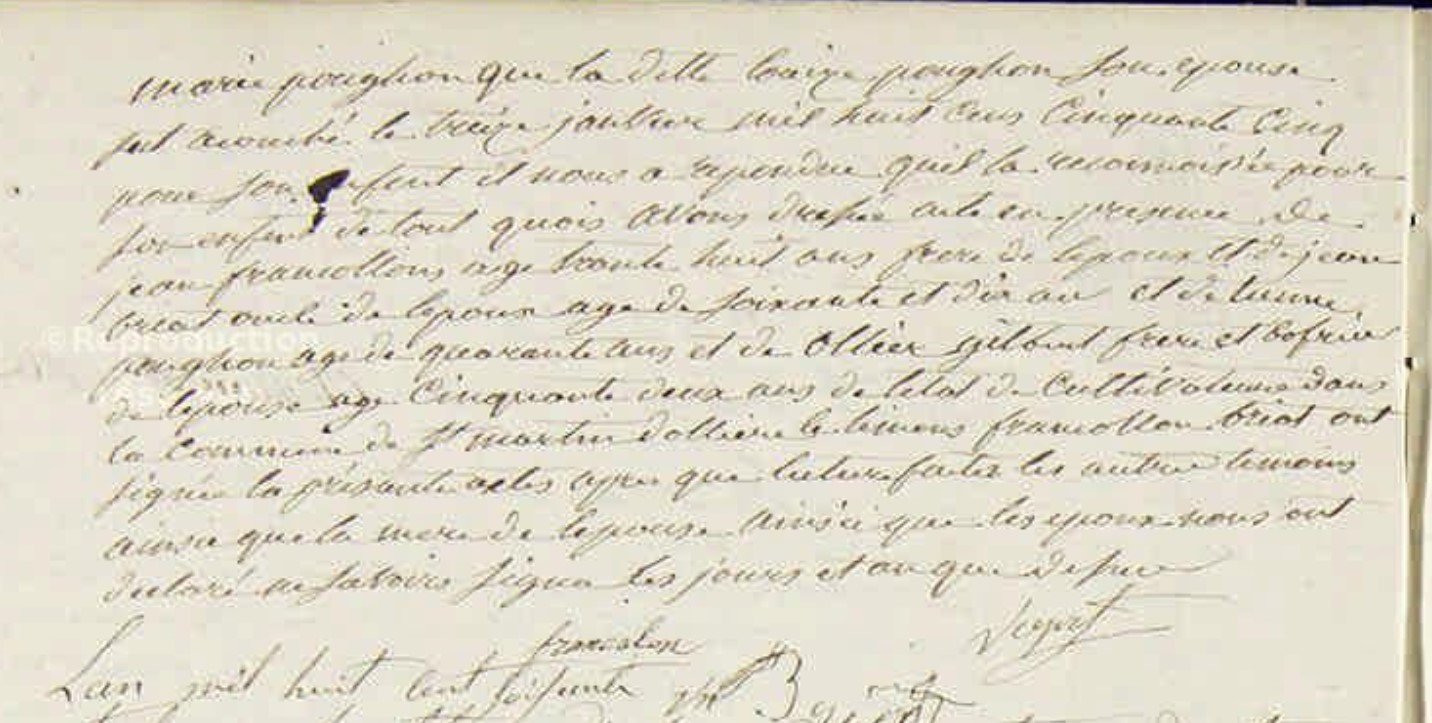 marie poughon que la ditte louize poughon son epouse
fut acouché le treize janvier mil huit cens Cinquante Cinq
pour son enfent il nous a repondue quil la reconnoissée pour
son enfent de tout quois avons dressée acte en presence de
jean francillons age trante huit ans frere de lepoux et de jean
briat oncle de lepoux age de soixante et dix an et de
poughon age de quarante ans et de Ollier gilbert frere et bofrere
de lepouse age Cinquante deux ans de letat de Cultivateurs dans
la Commune de St martin dollière le temoins briat ont
signée la présante actes apre que lecture faites les autres temoins
ainsie que la mere de lepouse ainsie que les epoux nous ont
declaré ne savoirs signer les jours et an que desus
Lan mil huit cent soisante
©Reproduction